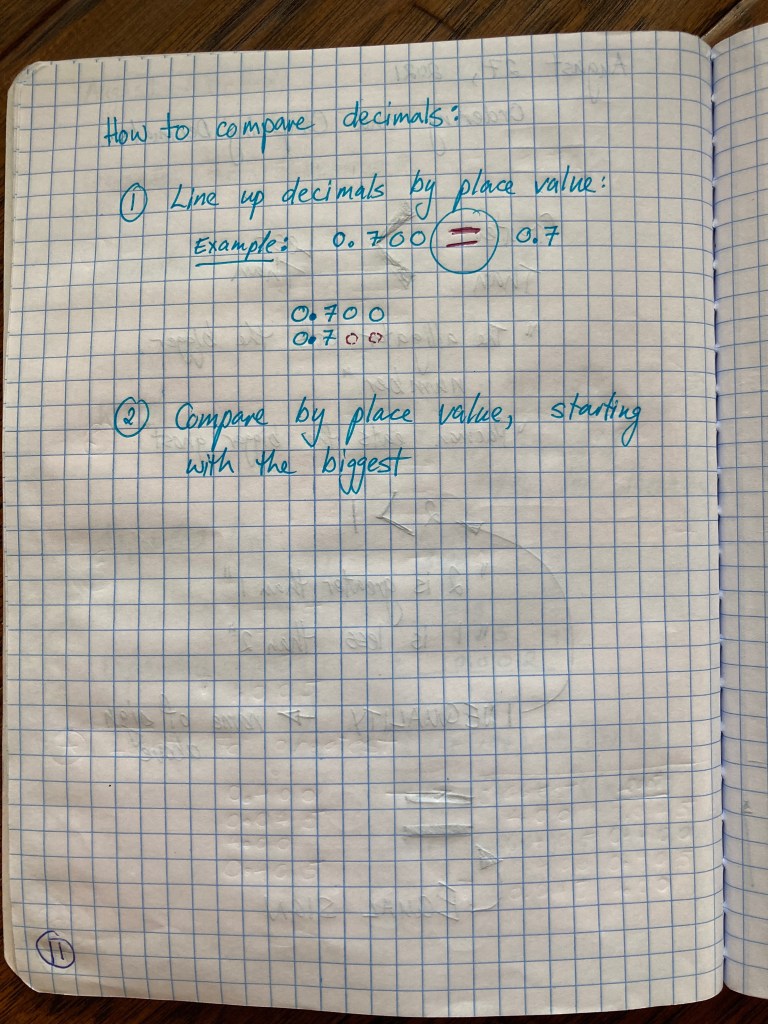 How to compare decimals:
① Line up decimals by place value:
Example: 0.700 = 0.7
0.700
0.700
② Compare by place value, starting
with the biggest
11